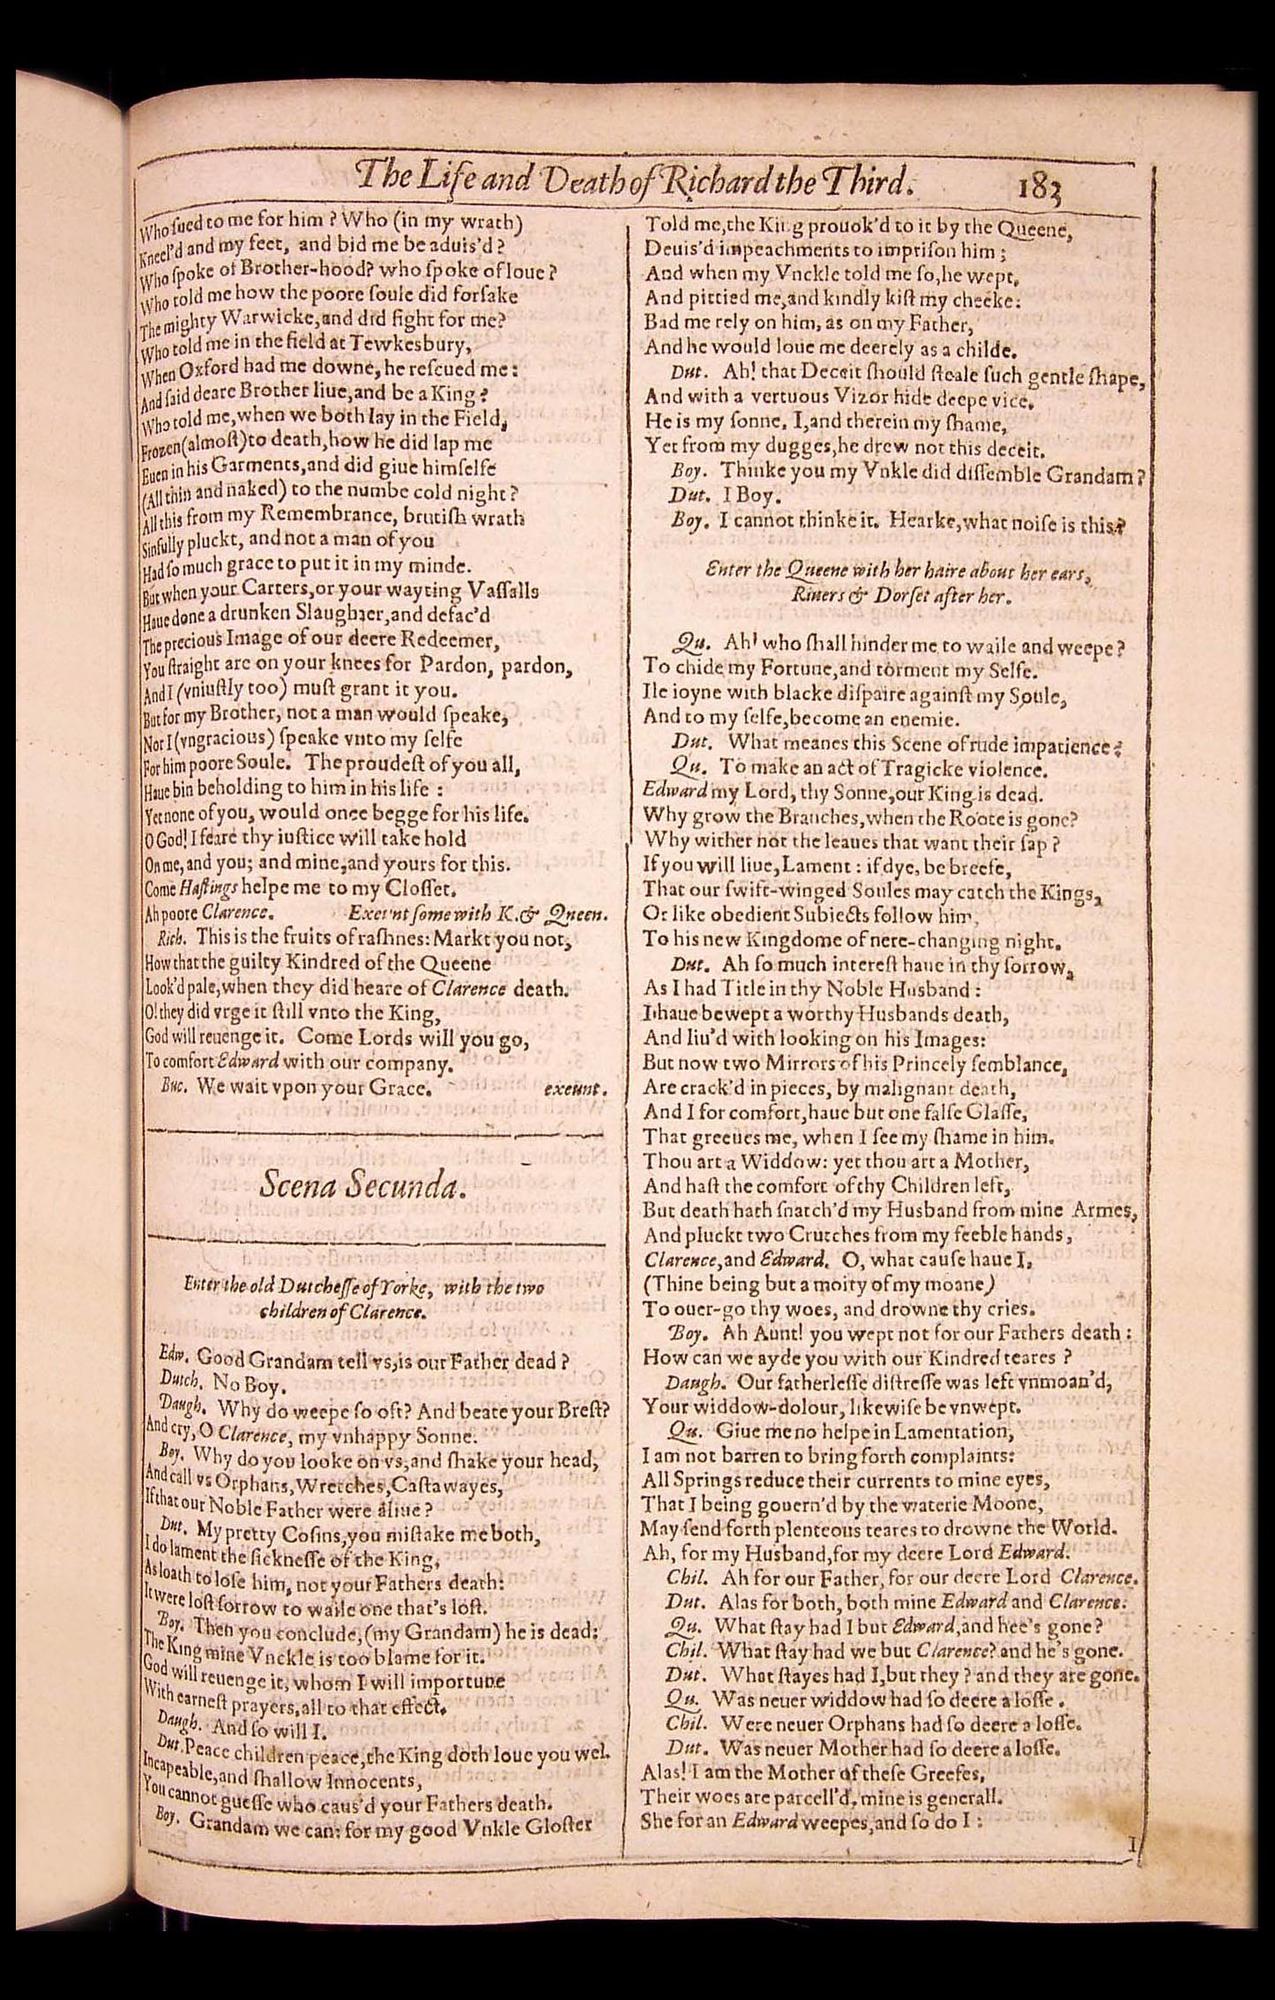 The Life and Death of Richard the Third. 183
Who ſued to me for him? Who (in my wrath)
Kneel'd and my feet, and bid me be aduis'd?
Who ſpoke of Brother-hood? who ſpoke of loue?
Who told me how the poore ſoule did forſake
The mighty Warwicke, and did fight for me?
Who told me in the field at Tewkesbury,
When Oxford had me downe, he reſcued me:
And ſaid deare Brother liue, and be a King?
Who told me, when we both lay in the Field,
Frozen (almoſt) to death, how he did lap me
Euen in his Garments, and did giue himſelfe
(All thin and naked) to the numbe cold night?
All this from my Remembrance, brutiſh wrath
Sinfully pluckt, and not a man of you
Had ſo much grace to put it in my minde.
But when your Carters, or your wayting Vaſſalls
Haue done a drunken Slaughter, and defac'd
The precious Image of our deere Redeemer,
You ſtraight are on your knees for Pardon, pardon,
And I (vniuſtly too) muſt grant it you.
But for my Brother, not a man would ſpeake,
Nor I (vngracious) ſpeake vnto my ſelfe
For him poore Soule. The proudeſt of you all,
Haue bin beholding to him in his life:
Yet none of you, would once begge for his life.
O God! I feare thy iuſtice will take hold
On me, and you; and mine, and yours for this.
Come Haſtings helpe me to my Cloſſet.
Ah poore Clarence. Exeunt ſome with K. & Queen.
Rich. This is the fruits of raſhnes: Markt you not,
How that the guilty Kindred of the Queene
Look'd pale, when they did heare of Clarence death.
O! they did vrge it ſtill vnto the King,
God will reuenge it. Come Lords will you go,
To comfort Edward with our company.
Buc. We wait vpon your Grace. exeunt.
Scena Secunda.
Enter the old Dutcheſſe of Yorke, with the two
children of Clarence.
Edw. Good Grandam tell vs, is our Father dead?
Dutch. No Boy.
Daugh. Why do weepe ſo oft? And beate your Breſt?
And cry, O Clarence, my vnhappy Sonne.
Boy. Why do you looke on vs, and ſhake your head,
And call vs Orphans, Wretches, Caſtawayes,
If that our Noble Father were aliue?
Dut. My pretty Coſins, you miſtake me both,
I do lament the ſickneſſe of the King,
As loath to loſe him, not your Fathers death:
It were loſt ſorrow to waile one that's loſt.
Boy. Then you conclude, (my Grandam) he is dead:
The King mine Vnckle is too blame for it.
God will reuenge it, whom I will importune
With earneſt prayers, all to that effect.
Daugh. And ſo will I.
Dut. Peace children peace, the King doth loue you wel.
Incapeable, and ſhallow Innocents,
You cannot gueſſe who caus'd your Fathers death.
Boy. Grandam we can: for my good Vnkle Gloſter
Told me, the King prouok'd to it by the Queene,
Deuis'd impeachments to impriſon him;
And when my Vnckle told me ſo, he wept,
And pittied me, and kindly kiſt my cheeke:
Bad me rely on him, as on my Father,
And he would loue me deerely as a childe.
Dut. Ah! that Deceit ſhould ſteale ſuch gentle ſhape,
And with a vertuous Vizor hide deepe vice.
He is my ſonne, I, and therein my ſhame,
Yet from my dugges, he drew not this deceit.
Boy. Thinke you my Vnkle did diſſemble Grandam?
Dut. I Boy.
Boy. I cannot thinke it. Hearke, what noiſe is this?
Enter the Queene with her haire about her ears,
Riuers & Dorſet after her.
Qu. Ah! who ſhall hinder me to waile and weepe?
To chide my Fortune, and torment my Selfe.
Ile ioyne with blacke diſpaire againſt my Soule,
And to my ſelfe, become an enemie.
Dut. What meanes this Scene of rude impatience?
Qu. To make an act of Tragicke violence.
Edward my Lord, thy Sonne, our King is dead.
Why grow the Branches, when the Roote is gone?
Why wither not the leaues that want their ſap?
If you will liue, Lament: if dye, be breefe,
That our ſwift-winged Soules may catch the Kings,
Or like obedient Subiects follow him,
To his new Kingdome of nere-changing night.
Dut. Ah ſo much intereſt haue in thy ſorrow,
As I had Title in thy Noble Husband:
I haue bewept a worthy Husbands death,
And liu'd with looking on his Images:
But now two Mirrors of his Princely ſemblance,
Are crack'd in pieces, by malignant death,
And I for comfort, haue but one falſe Glaſſe,
That greeues me, when I ſee my ſhame in him.
Thou art a Widdow: yet thou art a Mother,
And haſt the comfort of thy Children left,
But death hath ſnatch'd my Husband from mine Armes,
And pluckt two Crutches from my feeble hands,
Clarence, and Edward. O, what cauſe haue I,
(Thine being but a moity of my moane)
To ouer-go thy woes, and drowne thy cries.
Boy. Ah Aunt! you wept not for our Fathers death:
How can we ayde you with our Kindred teares?
Daugh. Our fatherleſſe diſtreſſe was left vnmoan'd,
Your widdow-dolour, likewiſe be vnwept.
Qu. Giue me no helpe in Lamentation,
I am not barren to bring forth complaints:
All Springs reduce their currents to mine eyes,
That I being gouern'd by the waterie Moone,
May ſend forth plenteous teares to drowne the World.
Ah, for my Husband, for my deere Lord Edward.
Chil. Ah for our Father, for our deere Lord Clarence.
Dut. Alas for both, both mine Edward and Clarence.
Qu. What ſtay had I but Edward, and hee's gone?
Chil. What ſtay had we but Clarence? and he's gone.
Dut. What ſtayes had I, but they? and they are gone.
Qu. Was neuer widdow had ſo deere a loſſe.
Chil. Were neuer Orphans had ſo deere a loſſe.
Dut. Was neuer Mother had ſo deere a loſſe.
Alas! I am the Mother of theſe Greefes,
Their woes are parcell'd, mine is generall.
She for an Edward weepes, and ſo do I:
I